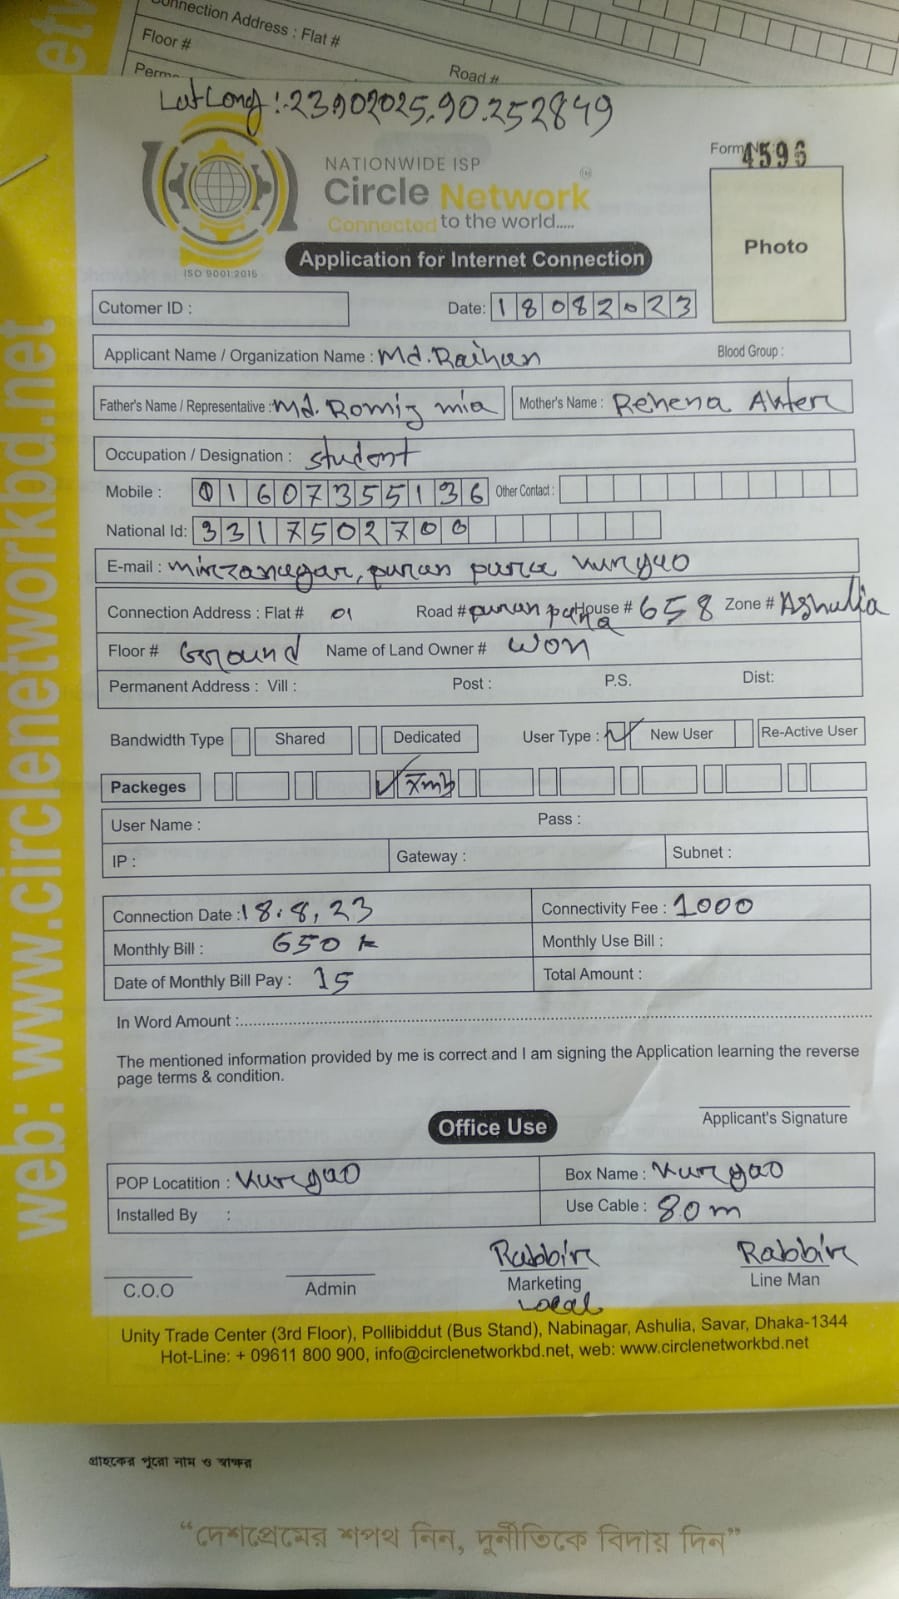 Connection Address : Flat #
Floor #
Road #
Lat Long :- 23.902025, 90.252849
Form 4596
NATIONWIDE ISP
Circle Network
Connected to the world.....
ISO 9001:2015
Application for Internet Connection
Photo
Cutomer ID :
Date: 18082023
Applicant Name / Organization Name : Md. Raihan Blood Group :
Father's Name / Representative : Md. Romiz mia Mother's Name : Rehena Akter
Occupation / Designation : student
Mobile : 01607355136 Other Contact :
National Id: 3317502700
E-mail : mirzanagar, puran para kurgao
Connection Address : Flat # 01 Road # puran para House # 658 Zone # Ashulia
Floor # Ground Name of Land Owner # won
Permanent Address : Vill : Post : P.S. Dist:
Bandwidth Type Shared Dedicated User Type : New User Re-Active User
Packeges
User Name : Pass :
IP : Gateway : Subnet :
Connection Date : 18.8,23 Connectivity Fee : 1000
Monthly Bill : 650 Monthly Use Bill :
Date of Monthly Bill Pay : 15 Total Amount :
In Word Amount :
The mentioned information provided by me is correct and I am signing the Application learning the reverse
page terms & condition.
Applicant's Signature
Office Use
POP Locatition : kurgao Box Name : kurgao
Installed By : Use Cable : 80m
Rabbir Rabbir
C.O.O Admin Marketing Line Man
Local
Unity Trade Center (3rd Floor), Pollibiddut (Bus Stand), Nabinagar, Ashulia, Savar, Dhaka-1344
Hot-Line: + 09611 800 900, info@circlenetworkbd.net, web: www.circlenetworkbd.net
web: www.circlenetworkbd.net
গ্রাহকের পুরো নাম ও স্বাক্ষর
“দেশপ্রেমের শপথ নিন, দুর্নীতিকে বিদায় দিন”